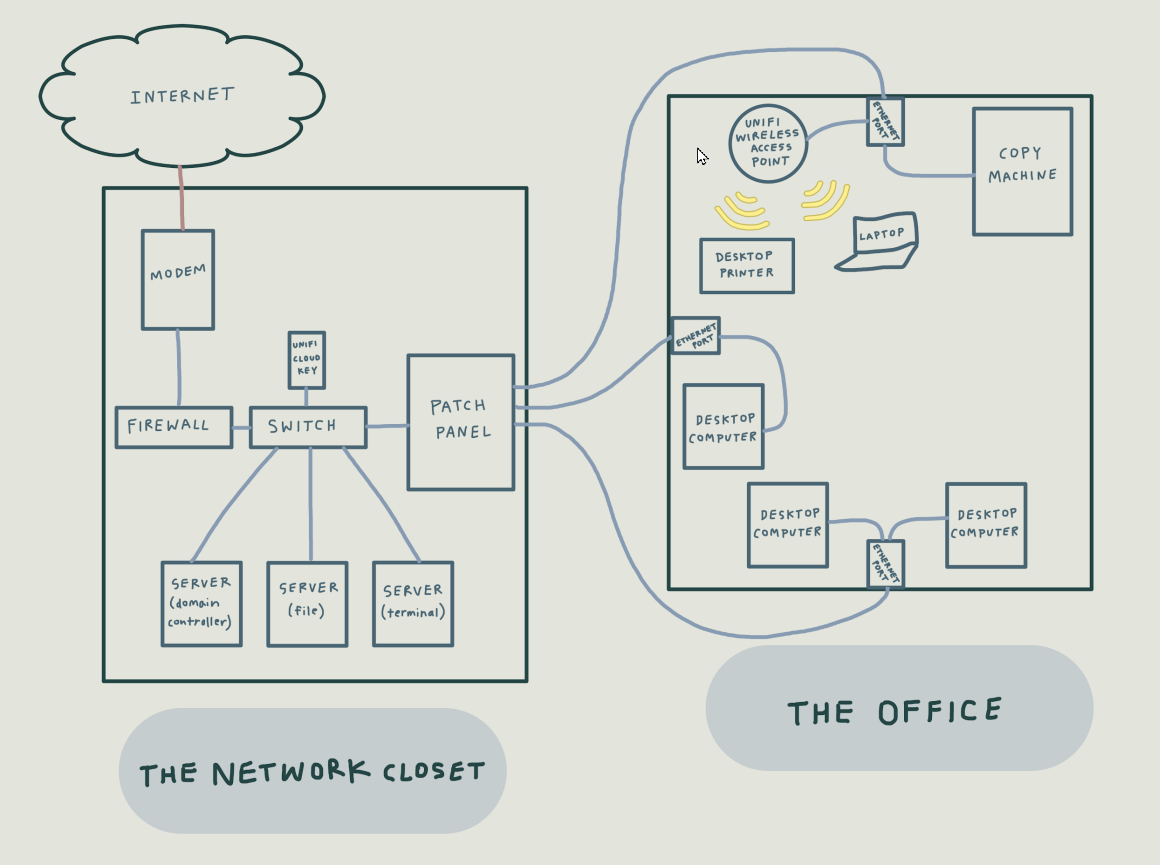 INTERNET
MODEM
UNIFI
CLOUD
KEY
FIREWALL
SWITCH
PATCH
PANEL
SERVER
(domain
controller)
SERVER
(file)
SERVER
(terminal)
THE NETWORK CLOSET
UNIFI
WIRELESS
ACCESS
POINT
ETHERNET
PORT
COPY
MACHINE
LAPTOP
DESKTOP
PRINTER
ETHERNET
PORT
DESKTOP
COMPUTER
DESKTOP
COMPUTER
DESKTOP
COMPUTER
ETHERNET
PORT
THE OFFICE